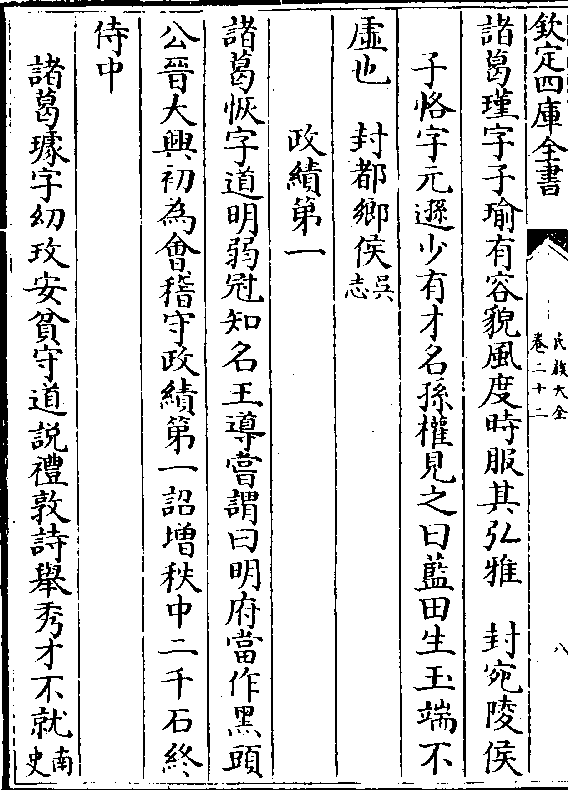 欽定四庫全書
氏族大全
卷二十二
八
諸葛瑾字子瑜有容貌風度時服其弘雅　封宛陵侯
子恪字元遜少有才名孫權見之曰藍田生玉端不
虛也　封都鄉侯吳志
政績第一
諸葛恢字道明弱冠知名王導嘗謂曰明府當作黑頭
公晉大興初為會稽守政績第一詔增秩中二千石終
侍中
諸葛璩字幼玫安貧守道説禮敦詩舉秀才不就南史